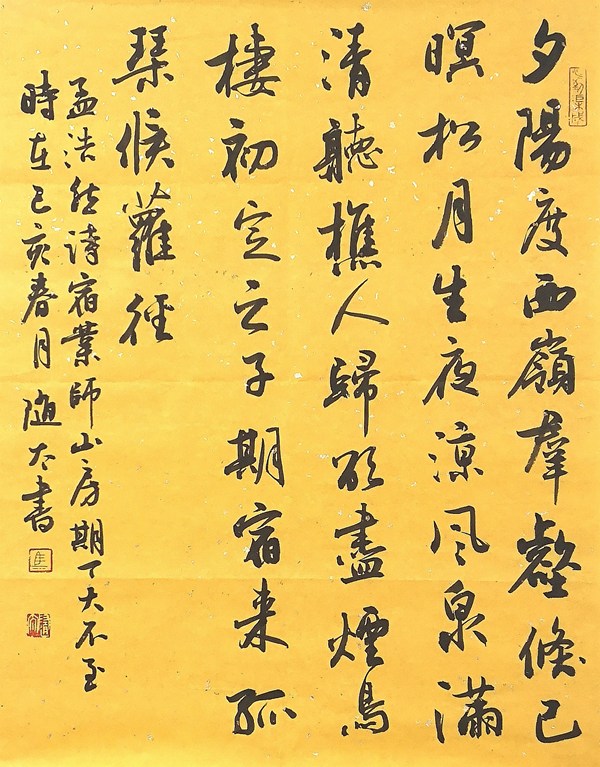 夕陽度西嶺羣壑倏已
暝松月生夜涼风泉滿
清聽樵人歸欲盡煙鳥
棲初定之子期宿来孤
琴候蘿徑
孟浩然詩宿業師山房期丁大不至
時在己亥春月随太書